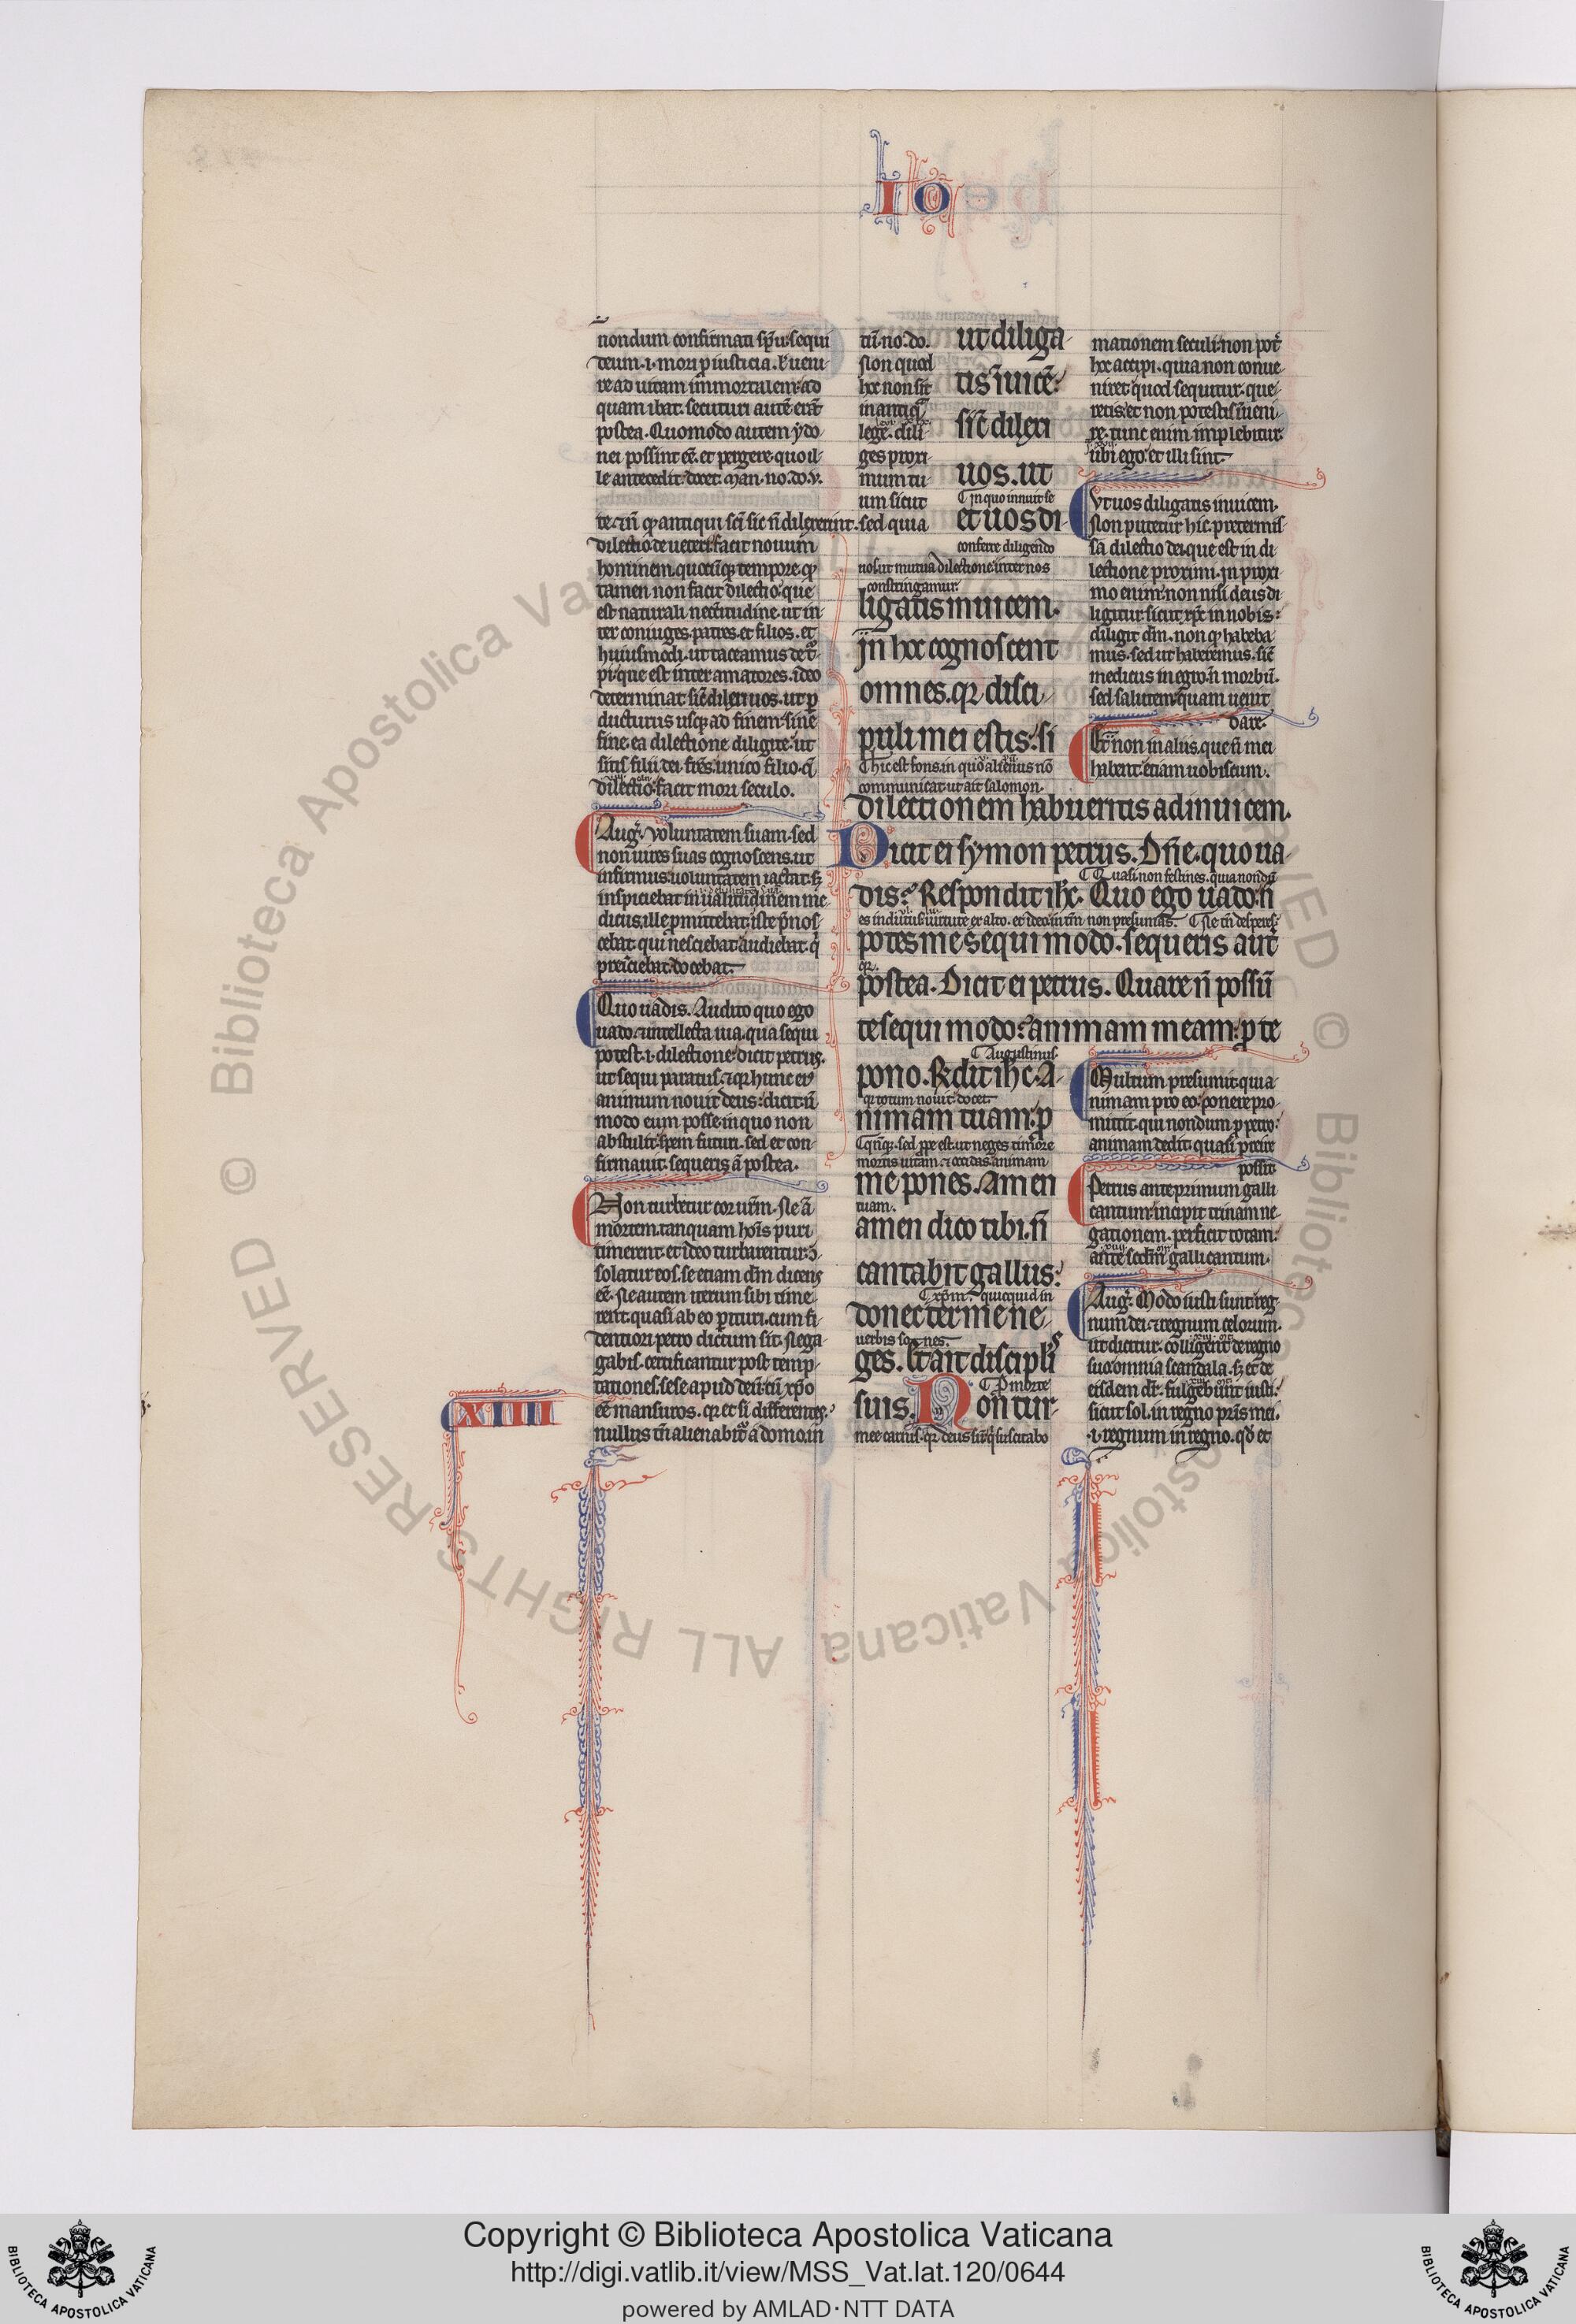 IO
nondum confirmati sp̄u. sequi
deum .i. mori p̱ iusticia. ł ueni-
re ad uitam immortalem: ad
quam ibat. secuturi autē erāt
postea. Quomodo autem ydo-
nei possint eē. et pergere quo il-
le antecedit: docet. Man. no. do. v.
te. ⁊ñ ꝙ antiqui scī sic ñ dilexerint. sed quia
dilectio de ueteri facit nouum
hominem. quocūqꝫ tempore. ꝙ
tamen non facit dilectio: que
est naturali nec̄itudine. ut in-
ter coniuges. patres. et filios. et
huiusmodi. ut taceamus de t͛-
pi. que est inter amatores. ideo
determinat. sic̄ dilexi uos. ut p̱
ducturus usqꝫ ad finem sine
fine. ea dilectione diligite: ut
sitis filii dei. fr̄es. unico filio. q̄
dilectio: facit mori seculo.
Aug᷒. Voluntatem suam. sed
non uires suas cognoscens. ut
infirmus: uoluntatem iactat. sꝫ
inspiciebat inualitudinem me-
dicus. ille p̱mittebat: iste p̄nos-
cebat. qui nesciebat audiebat. qͥ
presciebat. docebat.
Quo uadis. Audito quo ego
uado. ⁊ intellecta uia. qua sequi
potest .i. dilectione: dicit petrus.
ut sequi paratus. ⁊ qꝛ hunc ei᷒
animum nouit deus: dicit ñ
modo eum posse. in quo non
abstulit spem futuri. sed et con-
firmauit. sequeris ā postea.
Non turbetur cor ur̄m. Ne ā
mortem. tanquam hoīs puri
timerent. et ideo turbarentur: 9-
solatur eos. se etiam dm̄ dicens
eē. Ne autem iterum sibi time-
rent. quasi ab eo p̱ituri. cum fi-
dentiori petro dictum sit. Nega-
gabis. certificantur post temp-
tationes. sese apud deū cū xp̄o
eē mansuros. qꝛ et si differentes.
nullus tn̄ alienabit᷒ a domo. in
XIIII
tū. no. do.
Non quod
hoc non sit
in antiq͛
lege. dili-
ges proxi-
mum tu-
um sicut
ut diliga-
tis īuicē:
sic̄ dilexi
uos. ut
In quo innuit se
et uos di-
conferre diligendo
nos. ut mutua dilectione inter nos
constringamur.
ligatis inuicem.
Jn hoc cognoscent
omnes. qꝛ disci-
puli mei estis: si
Hic est fons. in quo alienus nō
communicat. ut ait salomon.
dilectionem habueritis adinuicem.
Dicit ei symon petrus. Dn̄e. quo ua-
Quasi. non festines. quia nondū
dis? Respondit ih̄c. Quo ego uado: ñ
es indutus uirtute ex alto. et ideo in tm̄ non presumas. Ne tn̄ desperes.
potes me sequi modo. sequeris aut̄
qꝛ.
postea. Dicit ei petrus. Quare ñ possū
te sequi modo? animam meam: p̱ te
Augustinus.
pono. R̄dit ih̄c. A-
qꝛ totum nouit. docet.
nimam tuam: p̱
mortis uitam. ⁊ occidas animam
me pones. Amen
tuam.
amen dico tibi. ñ
cantabit gallus:
xp̄m. quicquid in
donec ter me ne-
uerbis sones.
ges. Et ait discipl'is
P̱ morte
suis. Non tur-
mee carnis. qꝛ deus sū. qͥ suscitabo
mationem seculi. non pot̄
hoc accipi. quia non conue-
niret: quod sequitur. que-
retis: et non potestis īueni-
re. tunc enim. implebitur.
ubi ego: et illi sint.
Vt uos diligatis inuicem.
Non putetur hic. pretermis-
sā dilectio dei. que est in di-
lectione proximi. Jn proxi-
mo enim: non nisi deus di-
ligitur. sicut xp̄c in nobis:
diligit dm̄. non ꝙ habeba-
mus. sed ut haberemus. sic̄
medicus in egro. ñ morbū.
sed salutem. quam uenit
dare.
Et non in aliis. que ñ mei
habent. etiam uobiscum.
Multum presumit. qui a-
nimam pro eo: ponere pro-
mittit. qui nondum p̱ petro:
animam dedit. quasi preire
possit.
Petrus ante primum galli
cantum: incipit trinam ne-
gationem. perficit totam:
ante scdm̄ galli cantum.
Aug᷒. Modo iusti sunt reg-
num dei. ⁊ regnum celorum.
ut dicitur. colligent de regno
suo omnia scandala. sꝫ et de
eisdem dr̄. fulgebunt iusti.
sicut sol. in regno pr̄is mei.
.i. regnum in regno. qd̄ et
Copyright © Biblioteca Apostolica Vaticana
http://digi.vatlib.it/view/MSS_Vat.lat.120/0644
powered by AMLAD·NTT DATA
BIBLIOTECA APOSTOLICA VATICANA
BIBLIOTECA APOSTOLICA VATICANA
© Biblioteca Apostolica Vaticana ALL RIGHTS RESERVED © Biblioteca Apostolica Vaticana ALL RIGHTS RESERVED